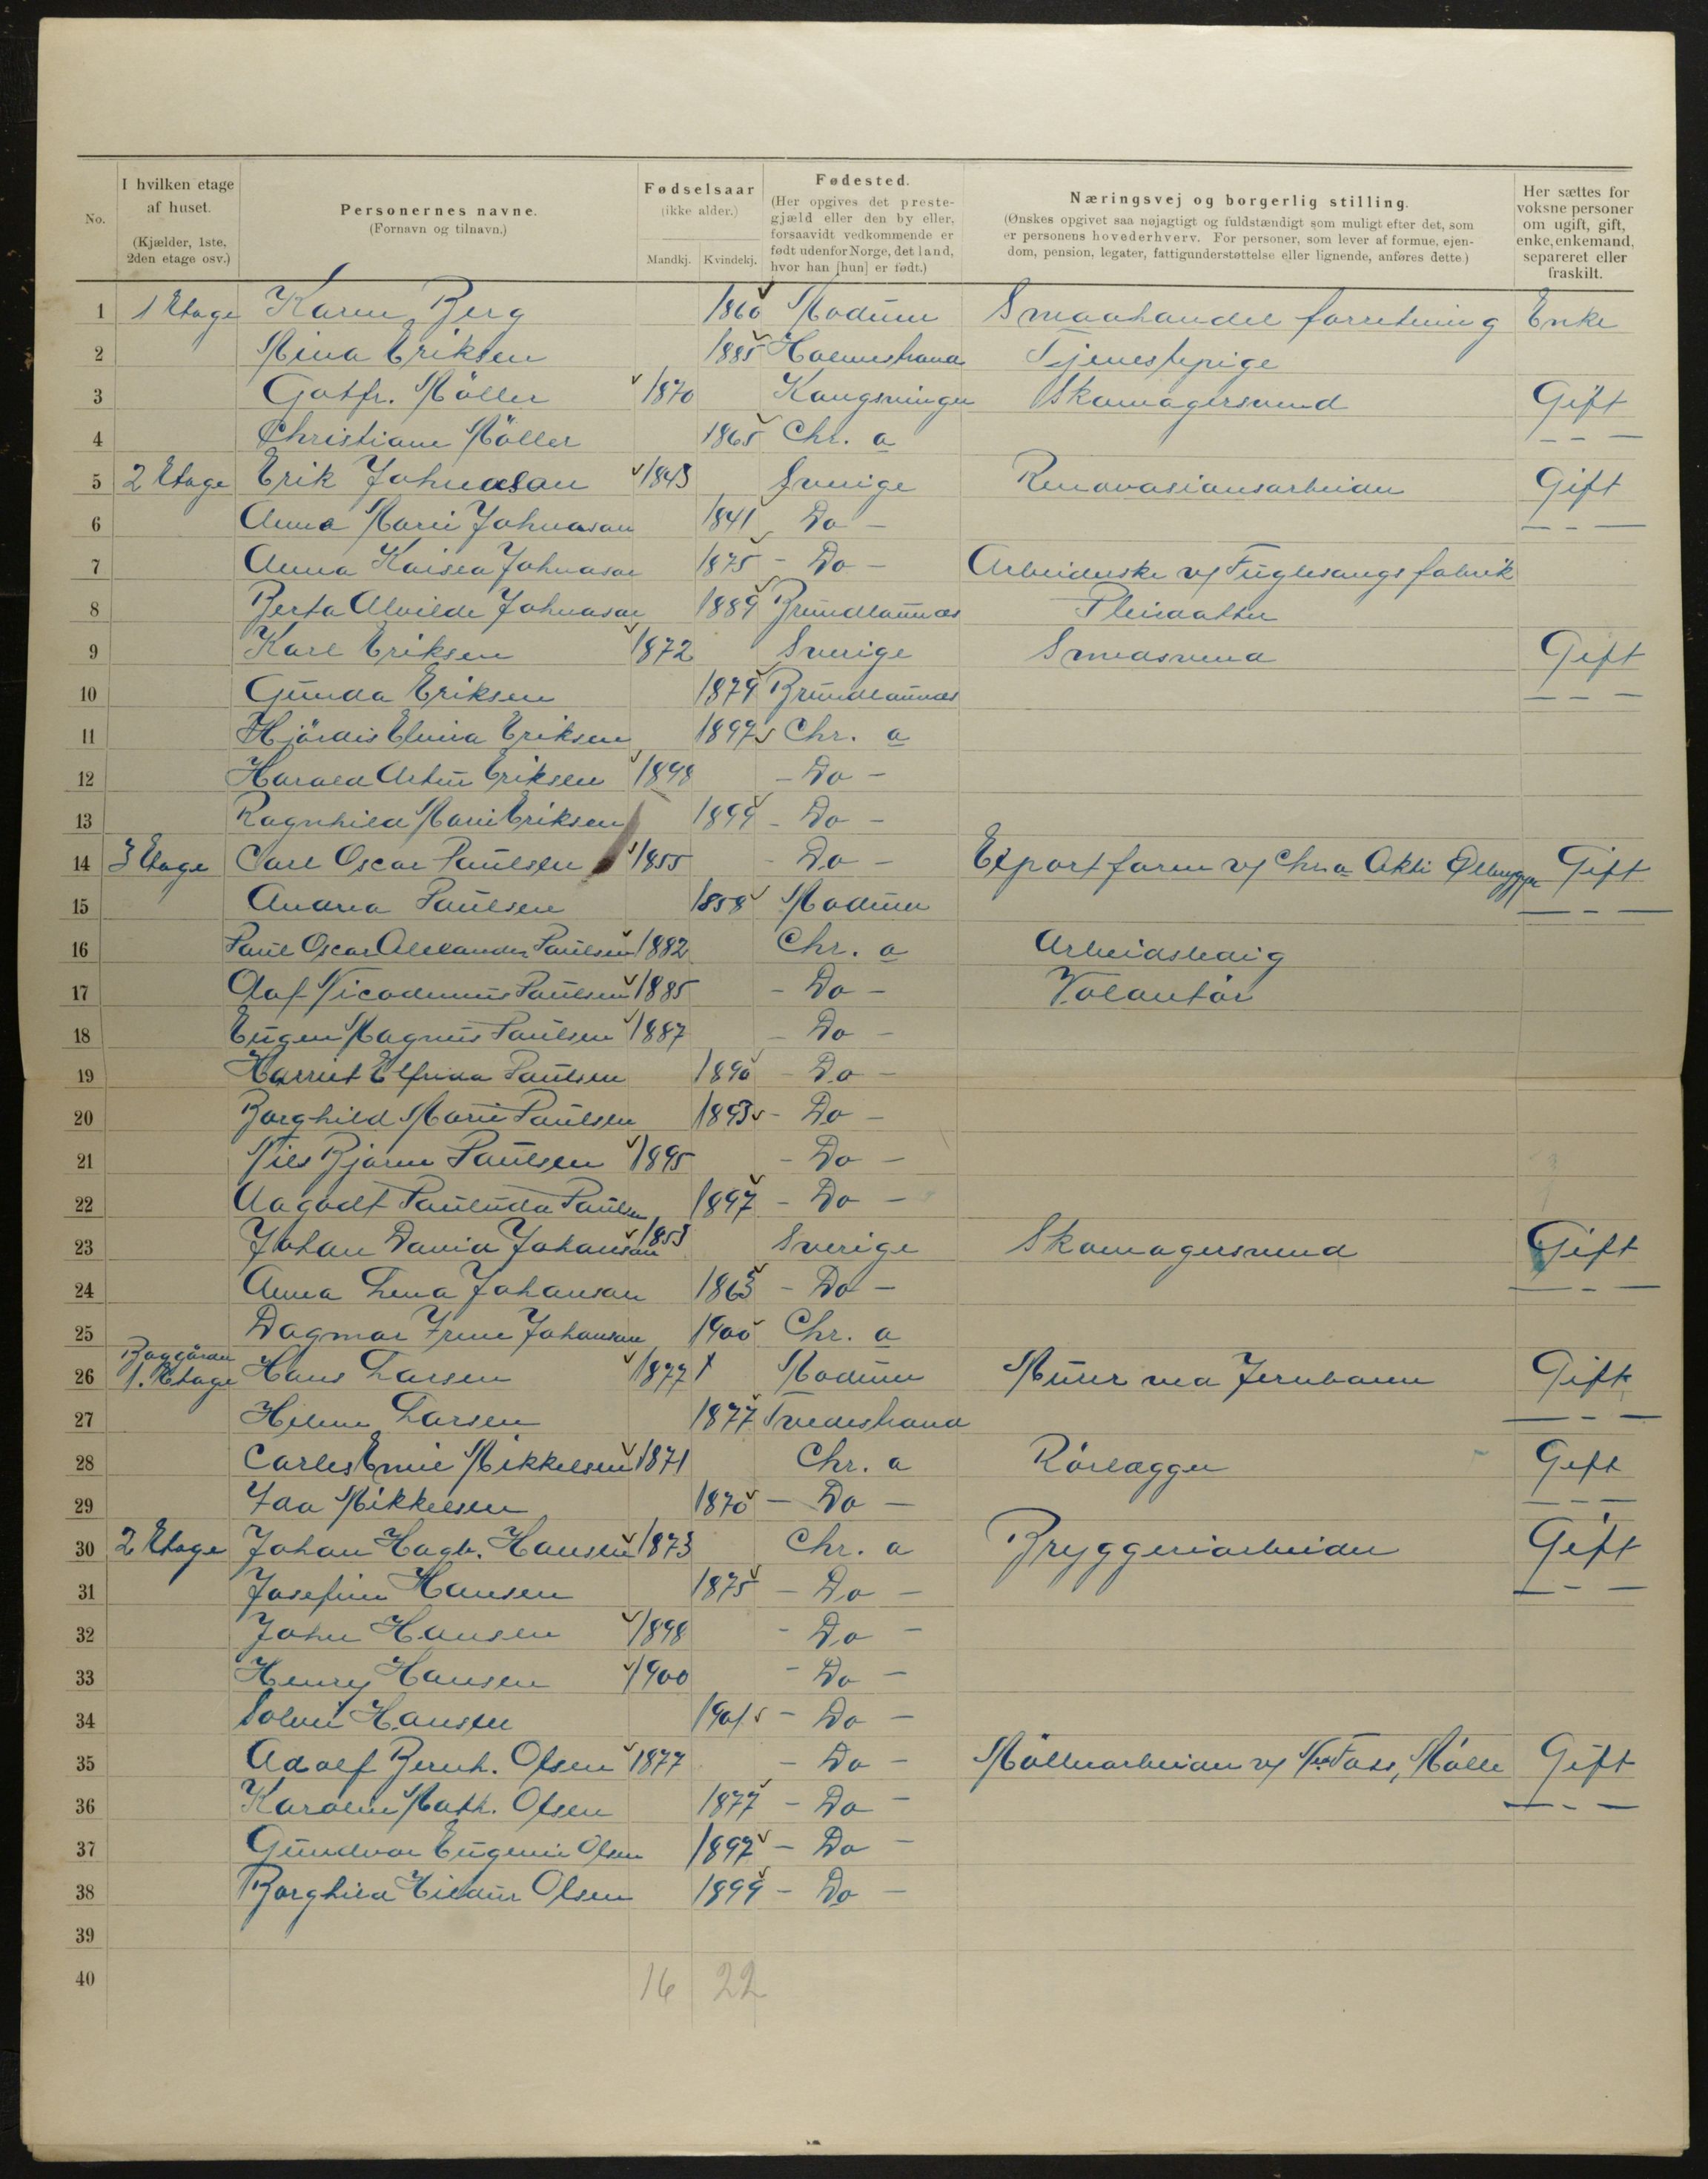 No.
I hvilken etage af huset. (Kjælder, 1ste, 2den etage osv.)
Personernes navne. (Fornavn og tilnavn.)
Fødselsaar (ikke alder.) Mandkj. Kvindekj.
Fødested. (Her opgives det prestegjæld eller den by eller, forsaavidt vedkommende er født udenfor Norge, det land, hvor han [hun] er født.)
Næringsvej og borgerlig stilling. (Ønskes opgivet saa nøjagtigt og fuldstændigt som muligt efter det, som er personens hovederhverv. For personer, som lever af formue, ejendom, pension, legater, fattigunderstøttelse eller lignende, anføres dette.)
Her sættes for voksne personer om ugift, gift, enke, enkemand, separeret eller fraskilt.
1 1 Etage Karen Berg 1860 Modum Smaahandel forretning Enke
2 Mina Eriksen 1885 Holmestrand Tjenestepige
3 Gotfr. Möller 1870 Kongsvinger Skomagersvend Gift
4 Christiane Möller 1865 Chr. a – – –
5 2 Etage Erik Johnasan 1843 Sverige Renovasionsarbeider Gift
6 Anna Marie Johnasan 1841 Do – – – –
7 Anna Kaisea Johnasan 1875 – Do – Arbeiderske v/ Fuglesangs fabrik
8 Berta Alvilde Johnasan 1889 Brundlannæs Pleiedatter
9 Karl Eriksen 1872 Sverige Smedsvend Gift
10 Gunda Eriksen 1879 Brundlannæs – – –
11 Hjördis Elvira Eriksen 1897 Chr. a
12 Harald Artur Eriksen 1898 – Do –
13 Ragnhild Marie Eriksen 1899 – Do –
14 3 Etage Carl Oscar Paulsen 1855 – Do – Exportform v/ Chr a Akti Ølbrygge Gift
15 Andrea Paulsen 1858 Modum – – –
16 Paul Oscar Alexander Paulsen 1882 Chr. a Arbeidsledig
17 Olaf Nicodemus Paulsen 1885 – Do – Volontör
18 Eugen Magnus Paulsen 1887 – Do –
19 Harriet Elfrida Paulsen 1890 – Do –
20 Borghild Marie Paulsen 1893 – Do –
21 Nils Bjarne Paulsen 1895 – Do –
22 Aagodt Paulude Paulsen 1897 – Do –
23 Johan David Johansan 1853 Sverige Skomagersvend Gift
24 Anna Lena Johansan 1863 – Do – – – –
25 Dagmar Irene Johansan 1900 Chr. a
Baggården
26 1. Etage Hans Larsen 1877 Modum Murer ved Jernbanen Gift
27 Helene Larsen 1877 Tvedestrand – – –
28 Carles Emil Mikkelsen 1871 Chr. a Rörlægger Gift
29 Ida Mikkelsen 1870 – Do – – – –
30 2 Etage Johan Hagb. Hansen 1873 Chr. a Bryggeriarbeider Gift
31 Josefine Hansen 1875 – Do – – – –
32 John Hansen 1898 – Do –
33 Henry Hansen 1900 – Do –
34 Solvei Hansen 1901 – Do –
35 Adolf Bernh. Olsen 1877 – Do – Möllearbeider v/ Foss, Mölle Gift
36 Karoline Math. Olsen 1877 – Do – – – –
37 Gundvor Eugenie Olsen 1897 – Do –
38 Borghild Hildur Olsen 1899 – Do –
39
40 16 22